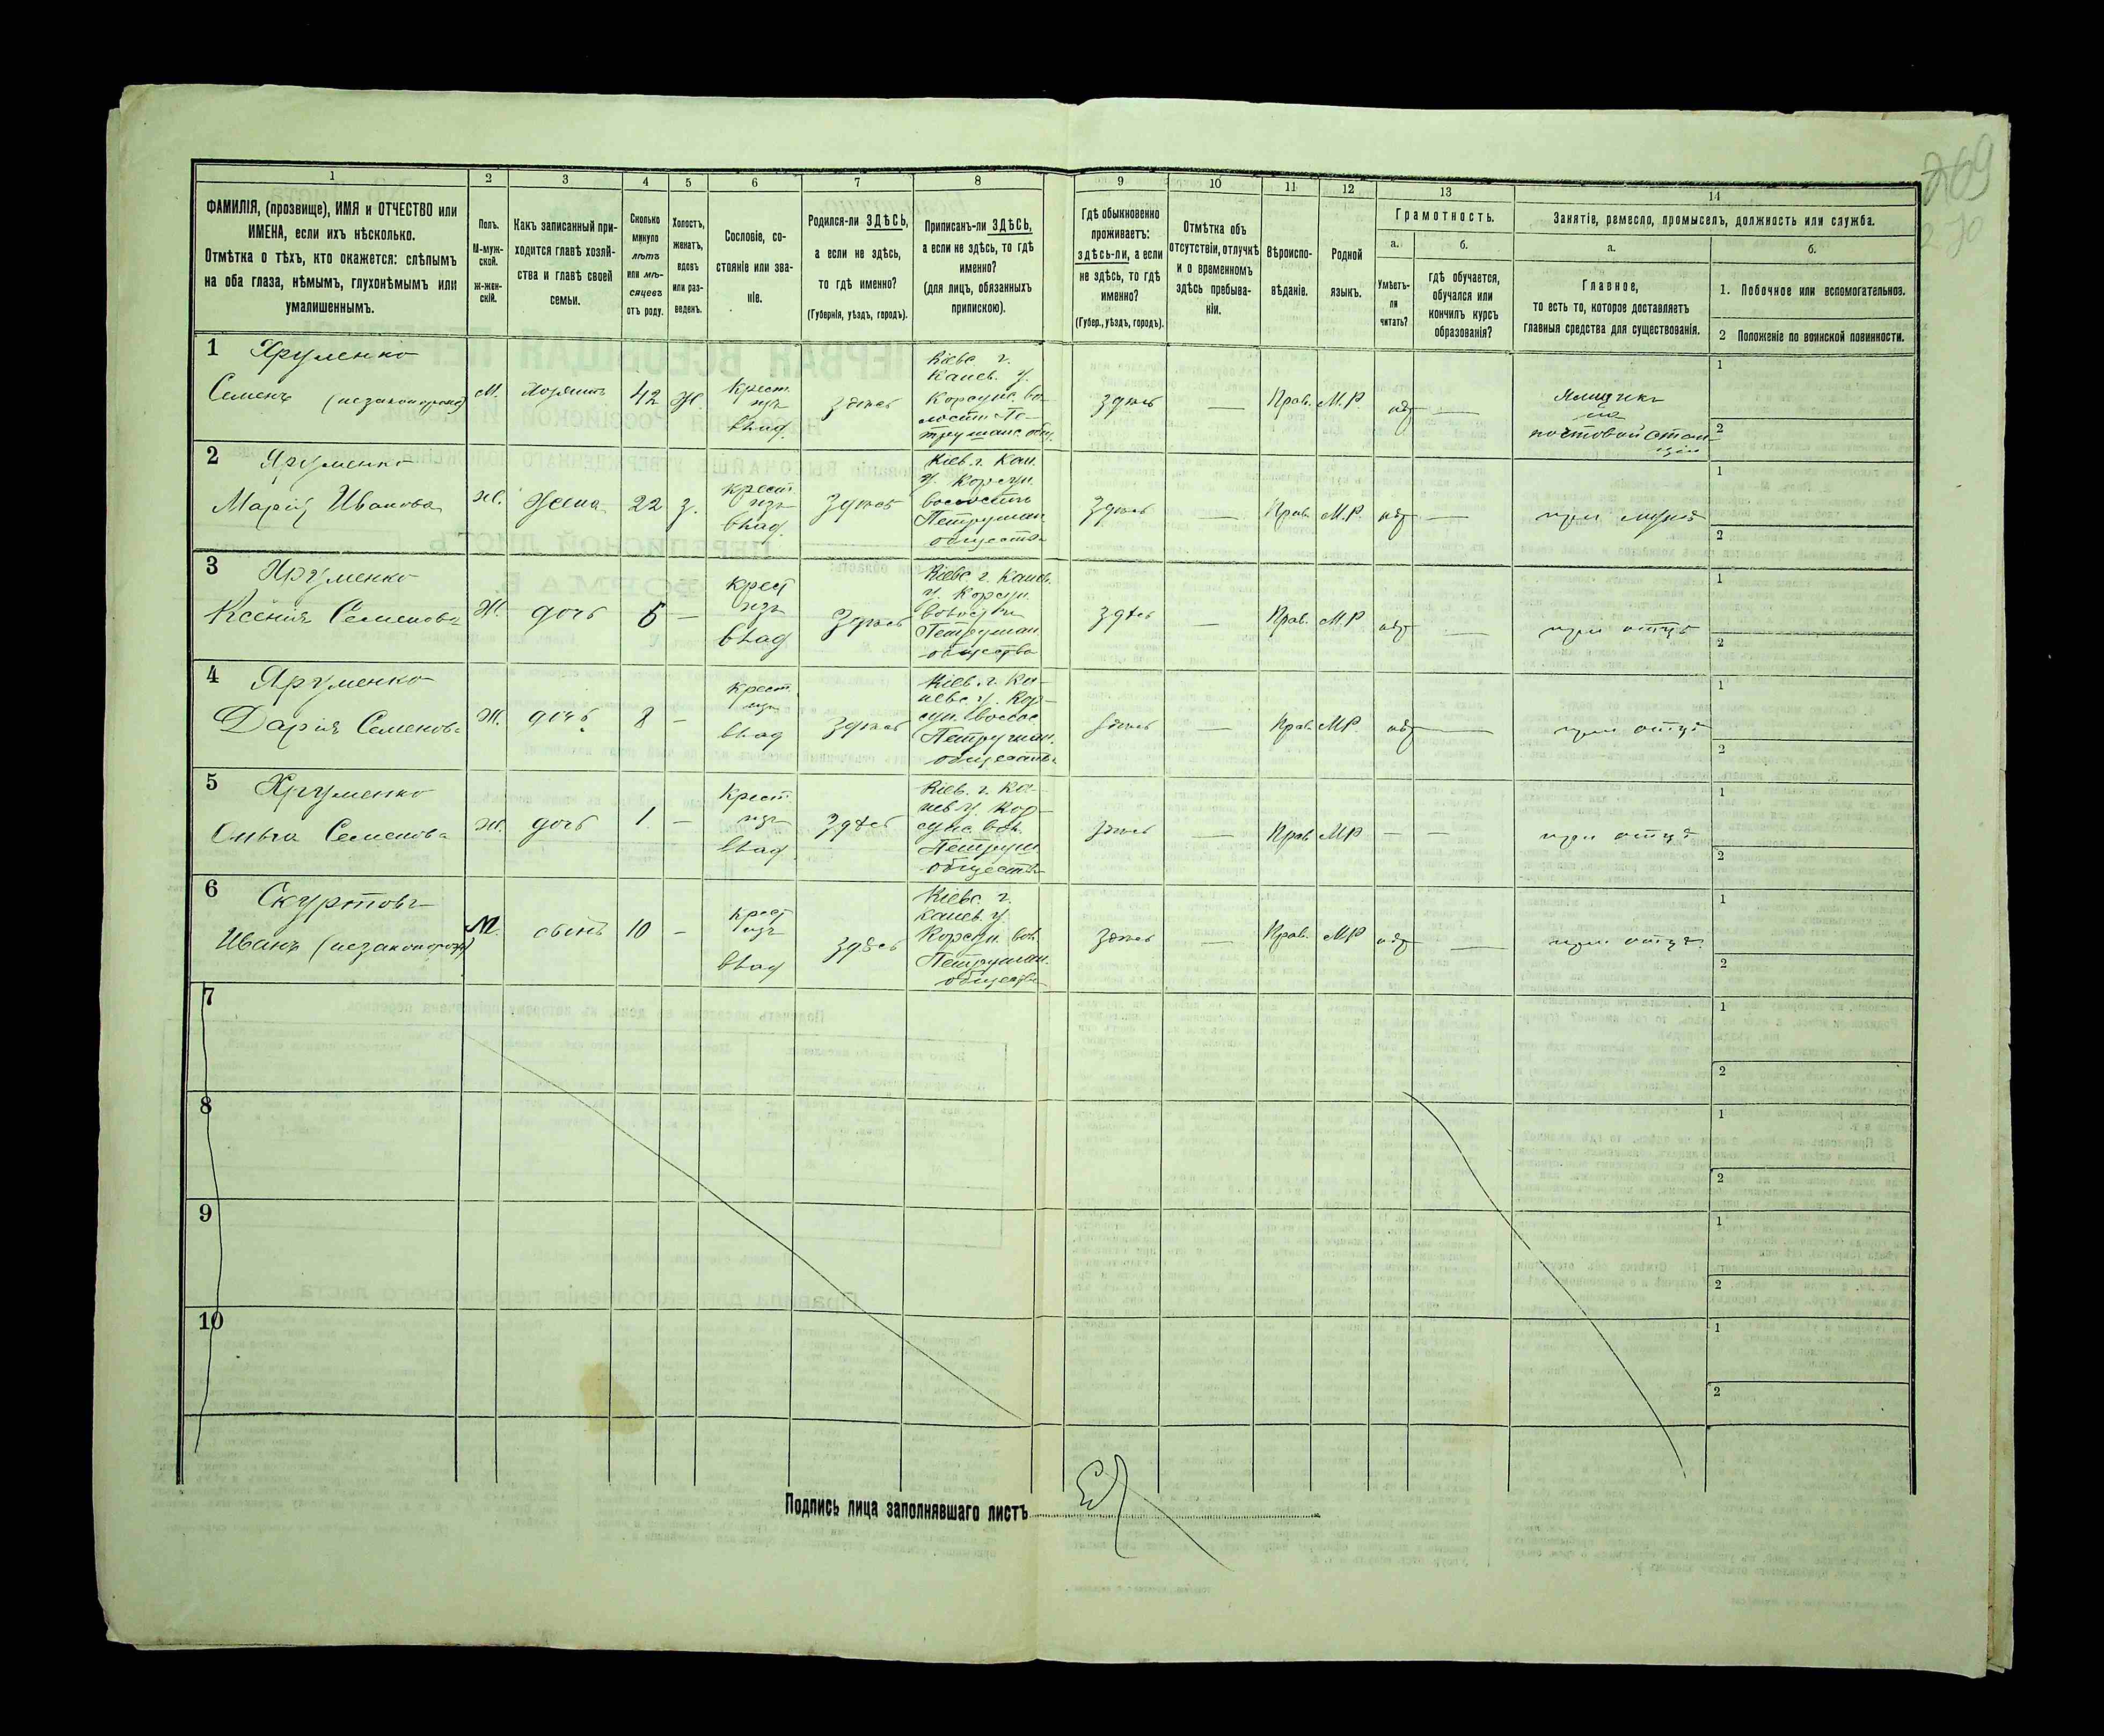 269
270
1 2 3 4 5 6 7 8 9 10 11 12 13 14
ФАМИЛІЯ, (прозвище), ИМЯ и ОТЧЕСТВО или
ИМЕНА, если ихъ нѣсколько.
Отмѣтка о тѣхъ, кто окажется: слѣпымъ
на оба глаза, нѣмымъ, глухонѣмымъ или
умалишеннымъ.
Полъ.
М-муж-
ской.
ж-жен-
скій.
Какъ записанный при-
ходится главѣ хозяй-
ства и главѣ своей
семьи.
Сколько
минуло
лѣтъ
или мѣ-
сяцевъ
отъ роду.
Холостъ,
женатъ,
вдовъ
или раз-
веденъ.
Сословіе, со-
стояніе или зва-
ніе.
Родился-ли ЗДѢСЬ,
а если не здѣсь,
то гдѣ именно?
(Губернія, уѣздъ, городъ).
Приписанъ-ли ЗДѢСЬ,
а если не здѣсь, то гдѣ
именно?
(для лицъ, обязанныхъ
припискою).
Гдѣ обыкновенно
проживаетъ:
здѣсь-ли, а если
не здѣсь, то гдѣ
именно?
(Губер., уѣздъ, городъ).
Отмѣтка объ
отсутствіи, отлучкѣ
и о временномъ
здѣсь пребыва-
ніи.
Вѣроиспо-
вѣданіе.
Родной
языкъ.
Грамотность.
а.
Умѣетъ-
ли
читать?
б.
гдѣ обучается,
обучался или
кончилъ курсъ
образованія?
Занятіе, ремесло, промыселъ, должность или служба.
а.
Главное,
то есть то, которое доставляетъ
главныя средства для существованія.
б.
1. Побочное или вспомогательное.
2 Положеніе по воинской повинности.
1 Яруменко
Семенъ (незаконорожд)
М.
Хозяинъ
42
Ж
Крест.
изъ
влад.
здѣсь
Кіевс. г.
Канев. у.
Корсунс. во-
лости Пе-
трушанс. общ.
здѣсь
—
Прав.
М.Р.
нѣт
—
Ямщикъ
на
почтовой стан-
ціи
1
2
2 Яруменко
Марія Иванова
Ж.
Жена
22
з.
крест.
изъ
влад.
Здѣсь
Кіев. г. Кан.
у. Корсун.
волости
Петрушан.
общества
Здѣсь
—
Прав.
М.Р.
нѣт
—
при мужѣ
1
2
3 Яруменко
Ксенія Семенова
Ж.
дочь
5
—
Крест
изъ
влад
Здѣсь
Кіевс. г. Канев.
у. Корсун.
волости
Петрушан.
общества
здѣсь
—
Прав.
М.Р
нѣт
—
при отцѣ
1
2
4 Яруменко
Дарія Семенова
Ж.
дочь
8
—
Крест.
изъ
влад
здѣсь
Кіев. г. Ка-
невс у. Кор-
сун. волос
Петрушан.
общества
здѣсь
—
Прав.
МР.
нѣт
—
при отцѣ
1
2
5 Яруменко
Ольга Семенова
Ж.
дочь
1
—
Крест.
изъ
влад.
Здѣсь
Кіев. г. Ка-
нев у. Кор-
сунс. вол.
Петруш.
общества
здѣсь
—
Прав
МР
—
—
при отцѣ
1
2
6
Иванъ (незаконорожд)
М.
сынъ
10
—
Крест
изъ
влад
здѣсь
Кіевс. г.
канев. у.
Корсун. вол.
Петрушан.
общества
Здѣсь
—
Прав.
МР
нѣт
—
при отцѣ.
1
2
7
1
2
8
1
2
9
1
2
10
1
2
Подпись лица заполнявшаго листъ